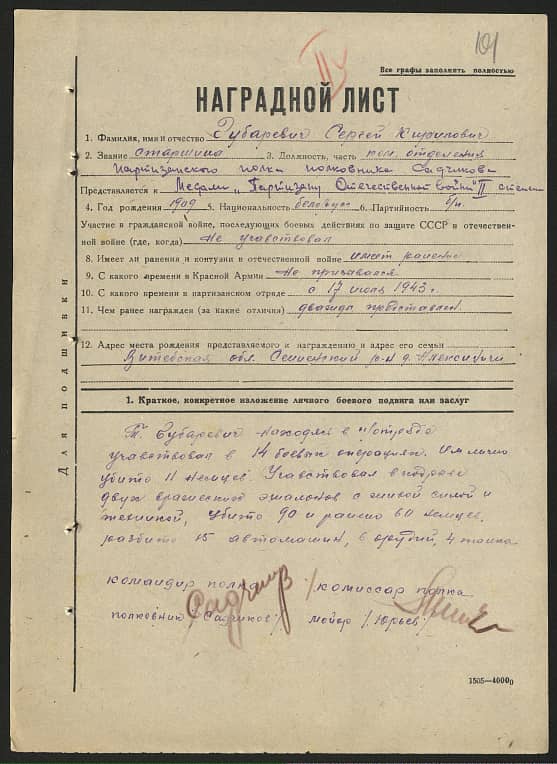 101
IIу
Все графы заполнять полностью
НАГРАДНОЙ ЛИСТ
1. Фамилия, имя и отчество Губаревич Сергей Кирилович
2. Звание старшина 3. Должность, часть ком. отделения
партизанского полка полковника Садчикова
Представляется к Медали „Партизану Отечественной войны" II степени
4. Год рождения 1909 5. Национальность белорус 6. Партийность б/п.
Участие в гражданской войне, последующих боевых действиях по защите СССР в отечествен-
ной войне (где, когда) Не учавствовал
8. Имеет ли ранения и контузии в отечественной войне имеет ранение
9. С какого времени в Красной Армии Не призывался
10. С какого времени в партизанском отряде с 17 июля 1943 г.
11. Чем ранее награжден (за какие отличия) дважда представлен
12. Адрес места рождения представляемого к награждению и адрес его семьи
Витебская обл. Сенненский р-н д. Алексиничи
Для подшивки
1. Краткое, конкретное изложение личного боевого подвига или заслуг
Т. Губаревич находясь в п/отряде
учавствовал в 14 боевых операциях. Им лично
убито 11 немцев. Учавствовал в подрыве
двух вражеских эшалонов с живой силой и
техникой, убито 90 и ранено 60 немцев,
разбито 15 автомашин, 6 орудий, 4 танка
командир полка / комиссар полка
полковник Садчиков / майор / Юрьев /
Садчиков
1505—4000